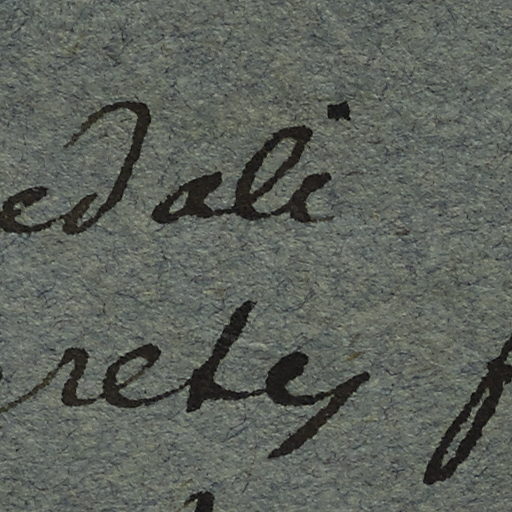 ed ali
rety f